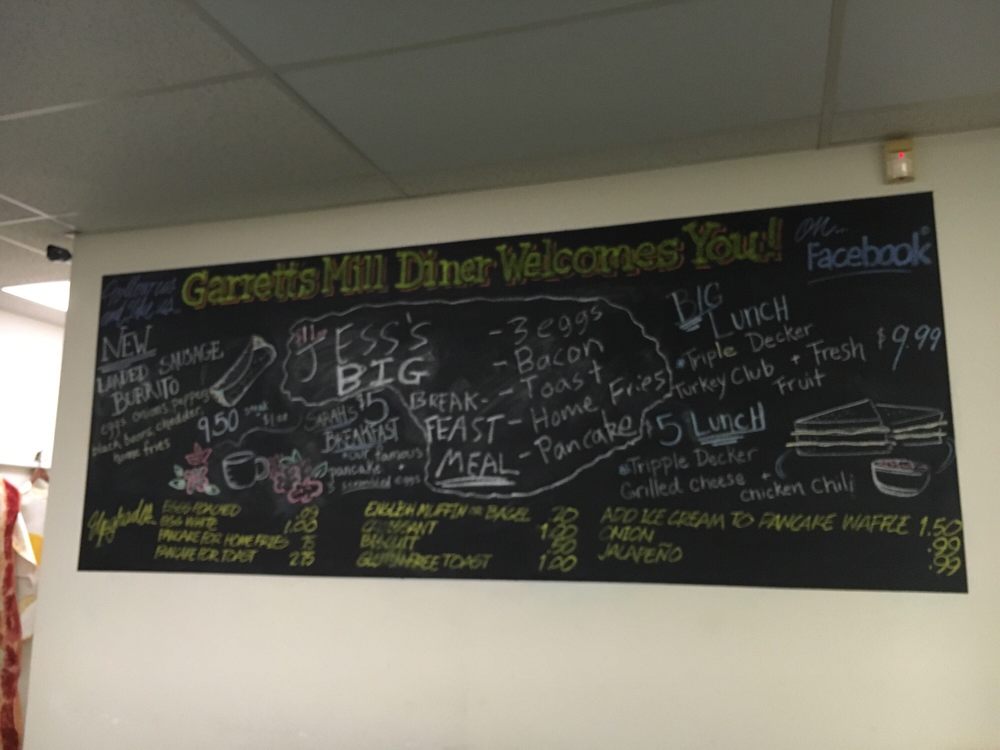 Follow us
and like us
Garretts Mill Diner Welcomes You!
on...
Facebook
NEW
LOADED SAUSAGE
BURRITO
eggs onions peppers
black beans cheddar
home fries
9.50
JESS'S
BIG
BREAK-
FEAST
MEAL
- 3 eggs
- Bacon
- Toast
- Home Fries
- Pancake
SARAH'S $5
BREAKFAST
our famous
pancake +
3 scrambled eggs
BIG
LUNCH
• Triple Decker
Turkey Club + Fresh
Fruit
$9.99
$5 LUNCH
• Tripple Decker
Grilled cheese +
chicken chili
EGGS POACHED
EGG WHITE 1.00
PANCAKE FOR HOME FRIES
PANCAKE FOR TOAST 2.75
ENGLISH MUFFIN OR BAGEL
CROISSANT
BISCUIT
GLUTEN FREE TOAST 1.00
ADD ICE CREAM TO PANCAKE WAFFLE 1.50
ONION .99
JALAPEÑO .99